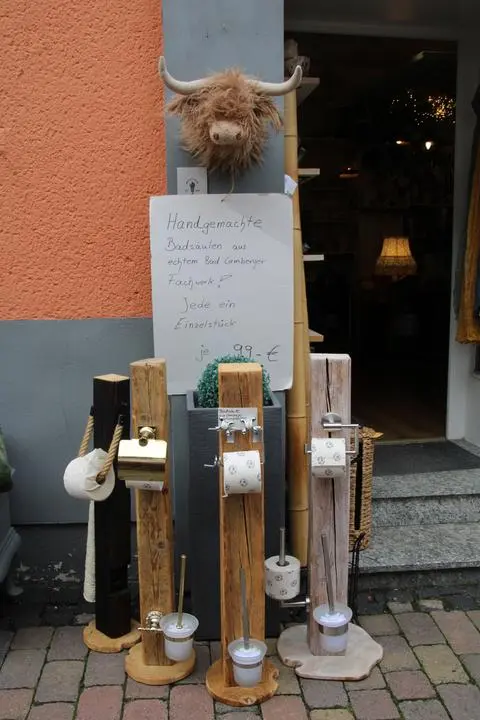 Handgemachte
Badsäulen aus
echtem Bad Camberger
Fachwerk!
Jede ein
Einzelstück
je 99,- €